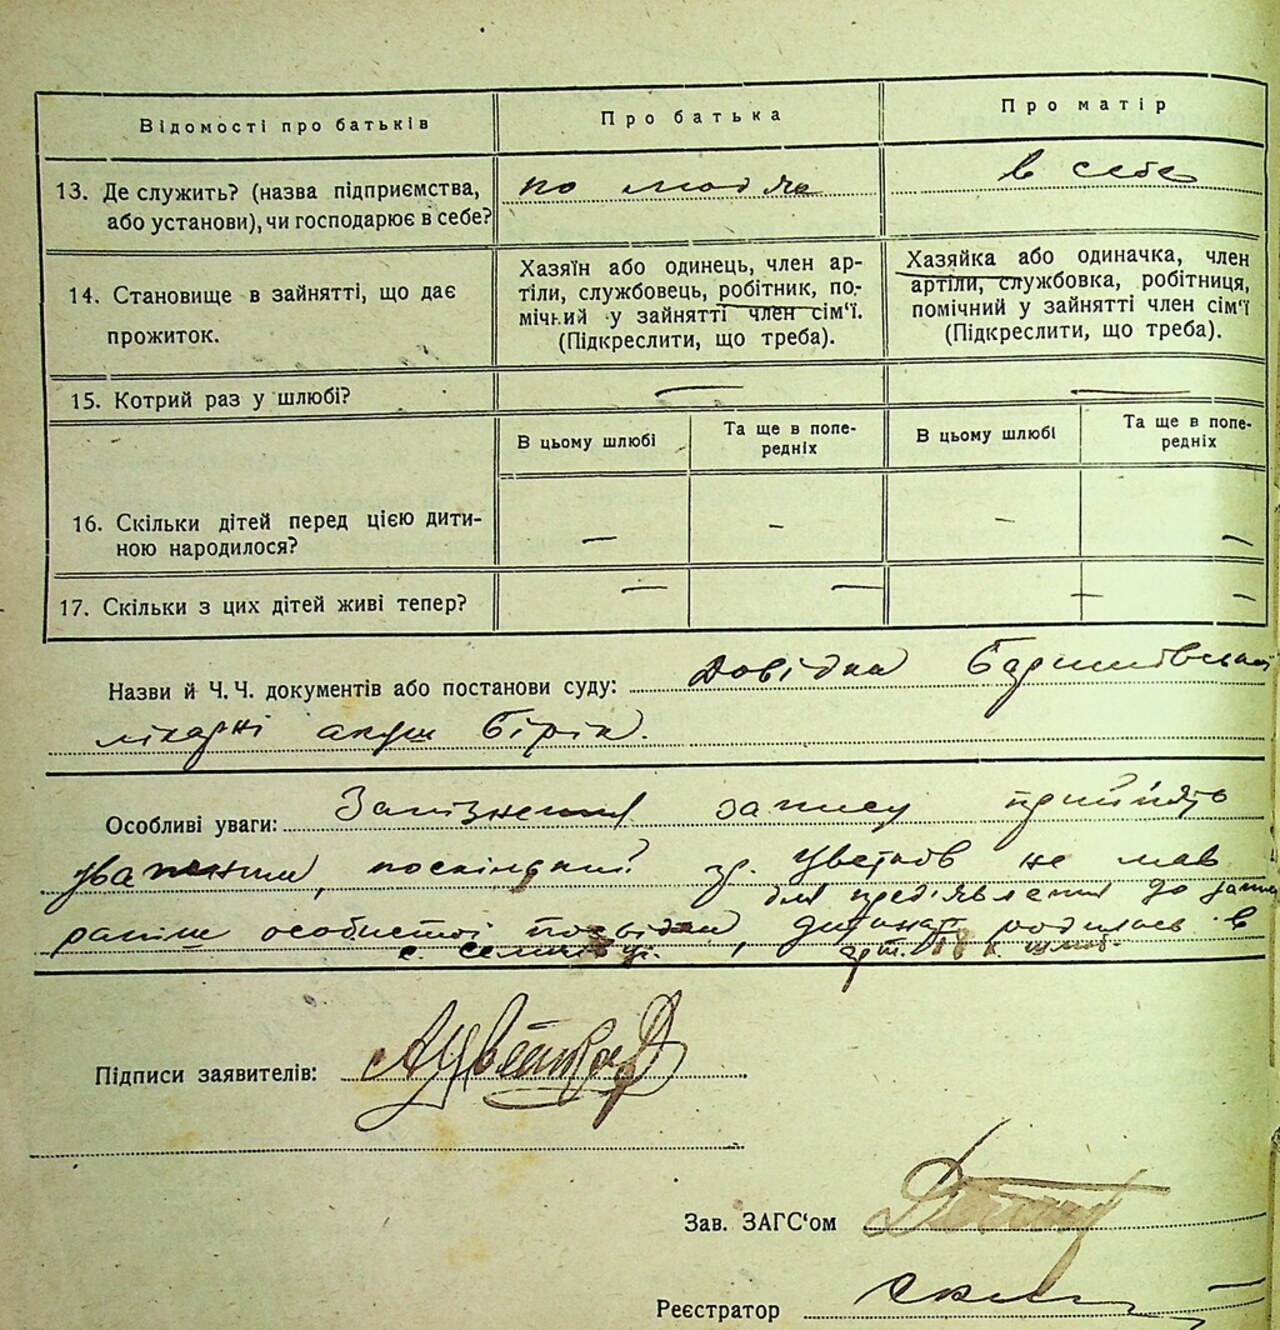 Відомості про батьків
Про батька
Про матір
13. Де служить? (назва підприємства,
або установи), чи господарює в себе?
по людях
в себе
14. Становище в зайнятті, що дає
прожиток.
Хазяїн або одинець, член ар-
тіли, службовець, робітник, по-
мічний у зайнятті член сім'ї.
(Підкреслити, що треба).
Хазяйка або одиначка, член
артіли, службовка, робітниця,
помічний у зайнятті член сім'ї
(Підкреслити, що треба).
15. Котрий раз у шлюбі?
—
—
В цьому шлюбі
Та ще в попе-
редніх
В цьому шлюбі
Та ще в попе-
редніх
16. Скільки дітей перед цією дити-
ною народилося?
— – – –
17. Скільки з цих дітей живі тепер?
— — — –
Назви й Ч. Ч. документів або постанови суду: Довідка Баришівської
лікарні акуш
Особливі уваги: Запізнення запису прийнять
уважним, гр. Цвєтков не мав
для пред'явлення до
раніш особистої посвідки, дитина родилась в
с.
Підписи заявителів: АЦвєтков
Зав. ЗАГС'ом
Реєстратор